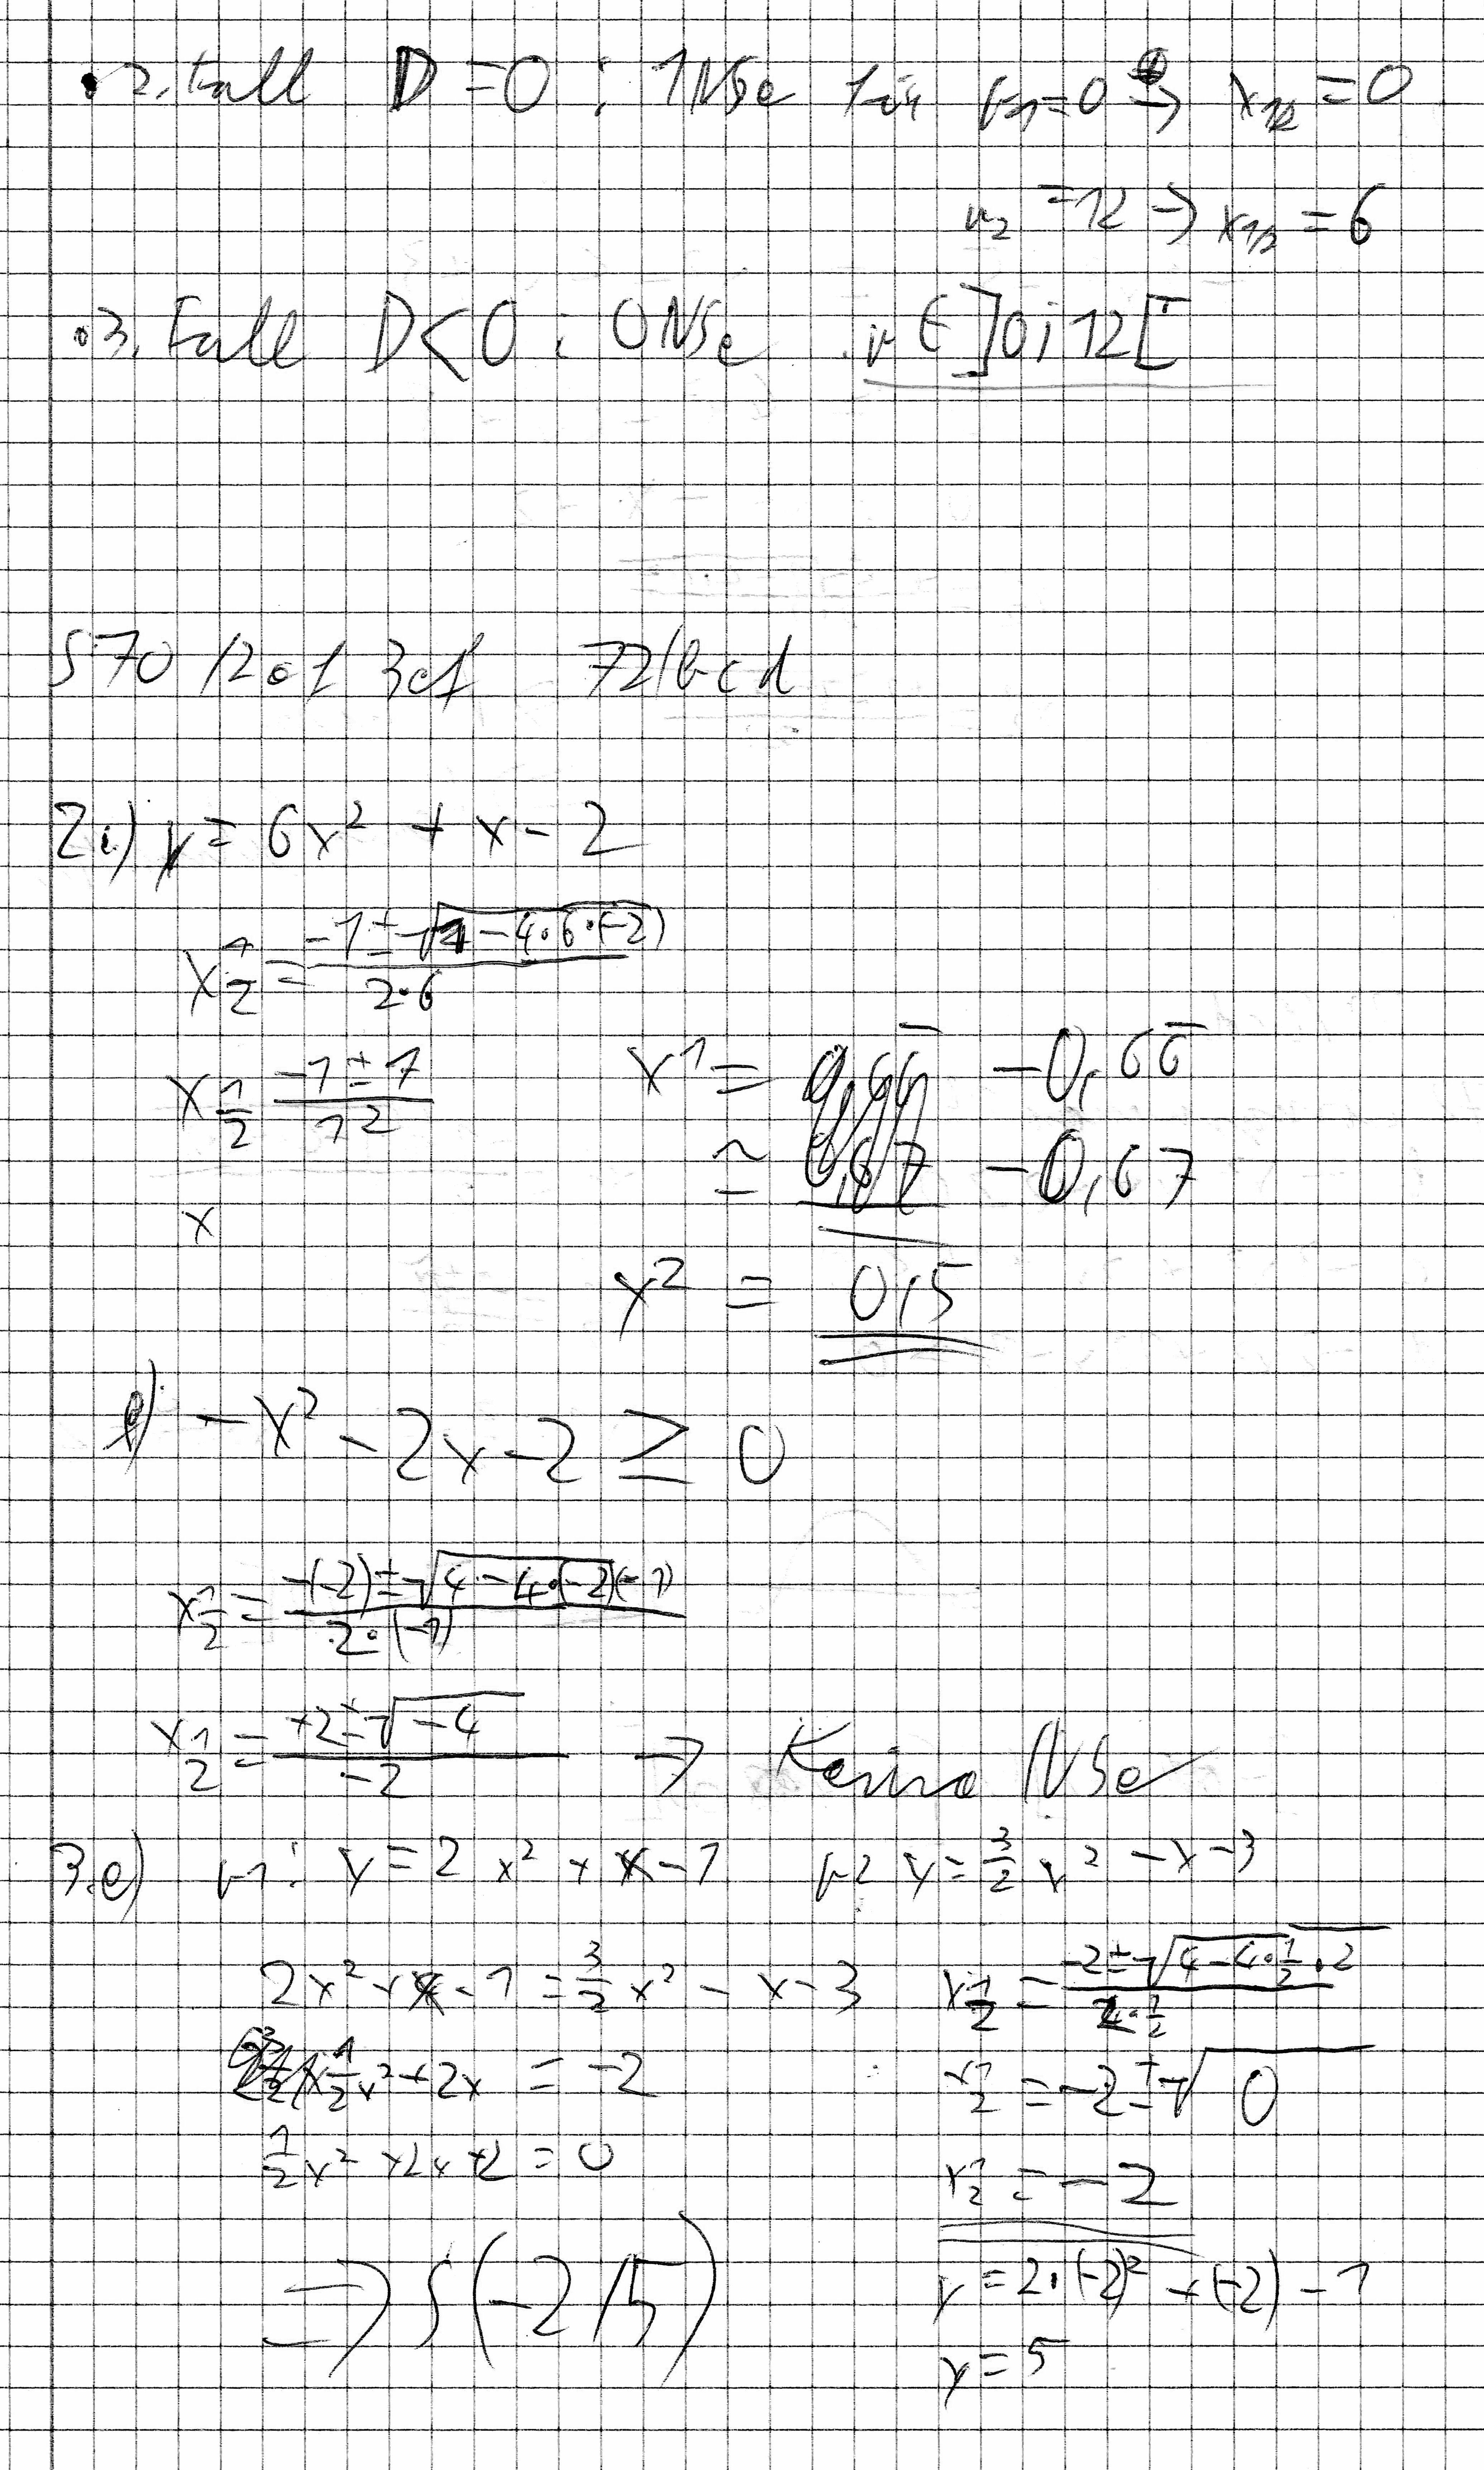 • 2. Fall D = 0 : 1 NSe für r1 = 0 → x1/2 = 0
r2 = 12 → x1/2 = 6
• 3. Fall D < 0 : 0 NSe r ∈ ]0; 12[
S 70 / 2 e f 3 e f 72 / b c d
2 e) y = 6x² + x - 2
x1/2 = (-1 ± √(1 - 4·6·(-2))) / (2·6)
x1/2 (-1 ± 7) / 12 x1 = -0,66̅
≈ -0,67
x
x2 = 0,5
f) -x² - 2x - 2 ≥ 0
x1/2 = (-(-2) ± √(4 - 4·(-2)(-1))) / (2·(-1))
x1/2 = (+2 ± √(-4)) / -2 → Keine NSe
3.e) p1: y = 2x² + x - 1 p2 y = 3/2 x² - x - 3
2x² + x - 1 = 3/2 x² - x - 3
1/2 x² + 2x = -2
1/2 x² + 2x + 2 = 0
x1/2 = (-2 ± √(4 - 4·1/2·2)) / (2·1/2)
x1/2 = -2 ± √0
x1/2 = -2
y = 2·(-2)² + (-2) - 1
y = 5
⇒ S(-2/5)